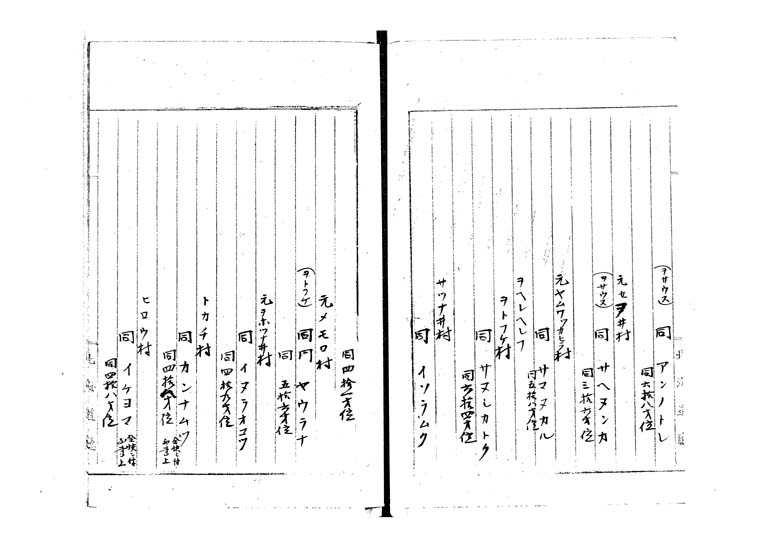 (ヲサウス) 同 アンノトレ
同六拾八才位
元セヲ井村
(ヲサウス) 同 サヘヌンカ
同三拾六才位
元ヤムワツカヒラ村
同 サマヌカル
同五拾八才位
ヲヘレヘレフ
ヲトフケ村
同 サヌレカトク
同六拾四才位
サツナ井村
同 イソラムク
同四拾一才位
元メモロ村
(ヲトフケ) 同 ヤウラナ
同 五拾六才位
元ヲホツナ井村
同 イヌラオコツ
同四拾九才位
トカチ村
同 カンナムツ
ヒロウ村
同 イケヨマ
同四拾八才位